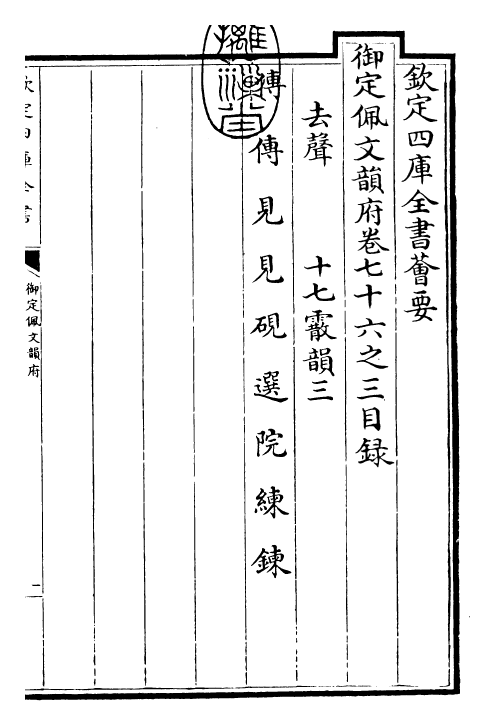 欽定四庫全書薈要
御定佩文韻府卷七十六之三目録
去聲　十七霰韻三
傳　傳　見　見　硯　選　院　練　鍊
欽定四庫全書
御定佩文韻府